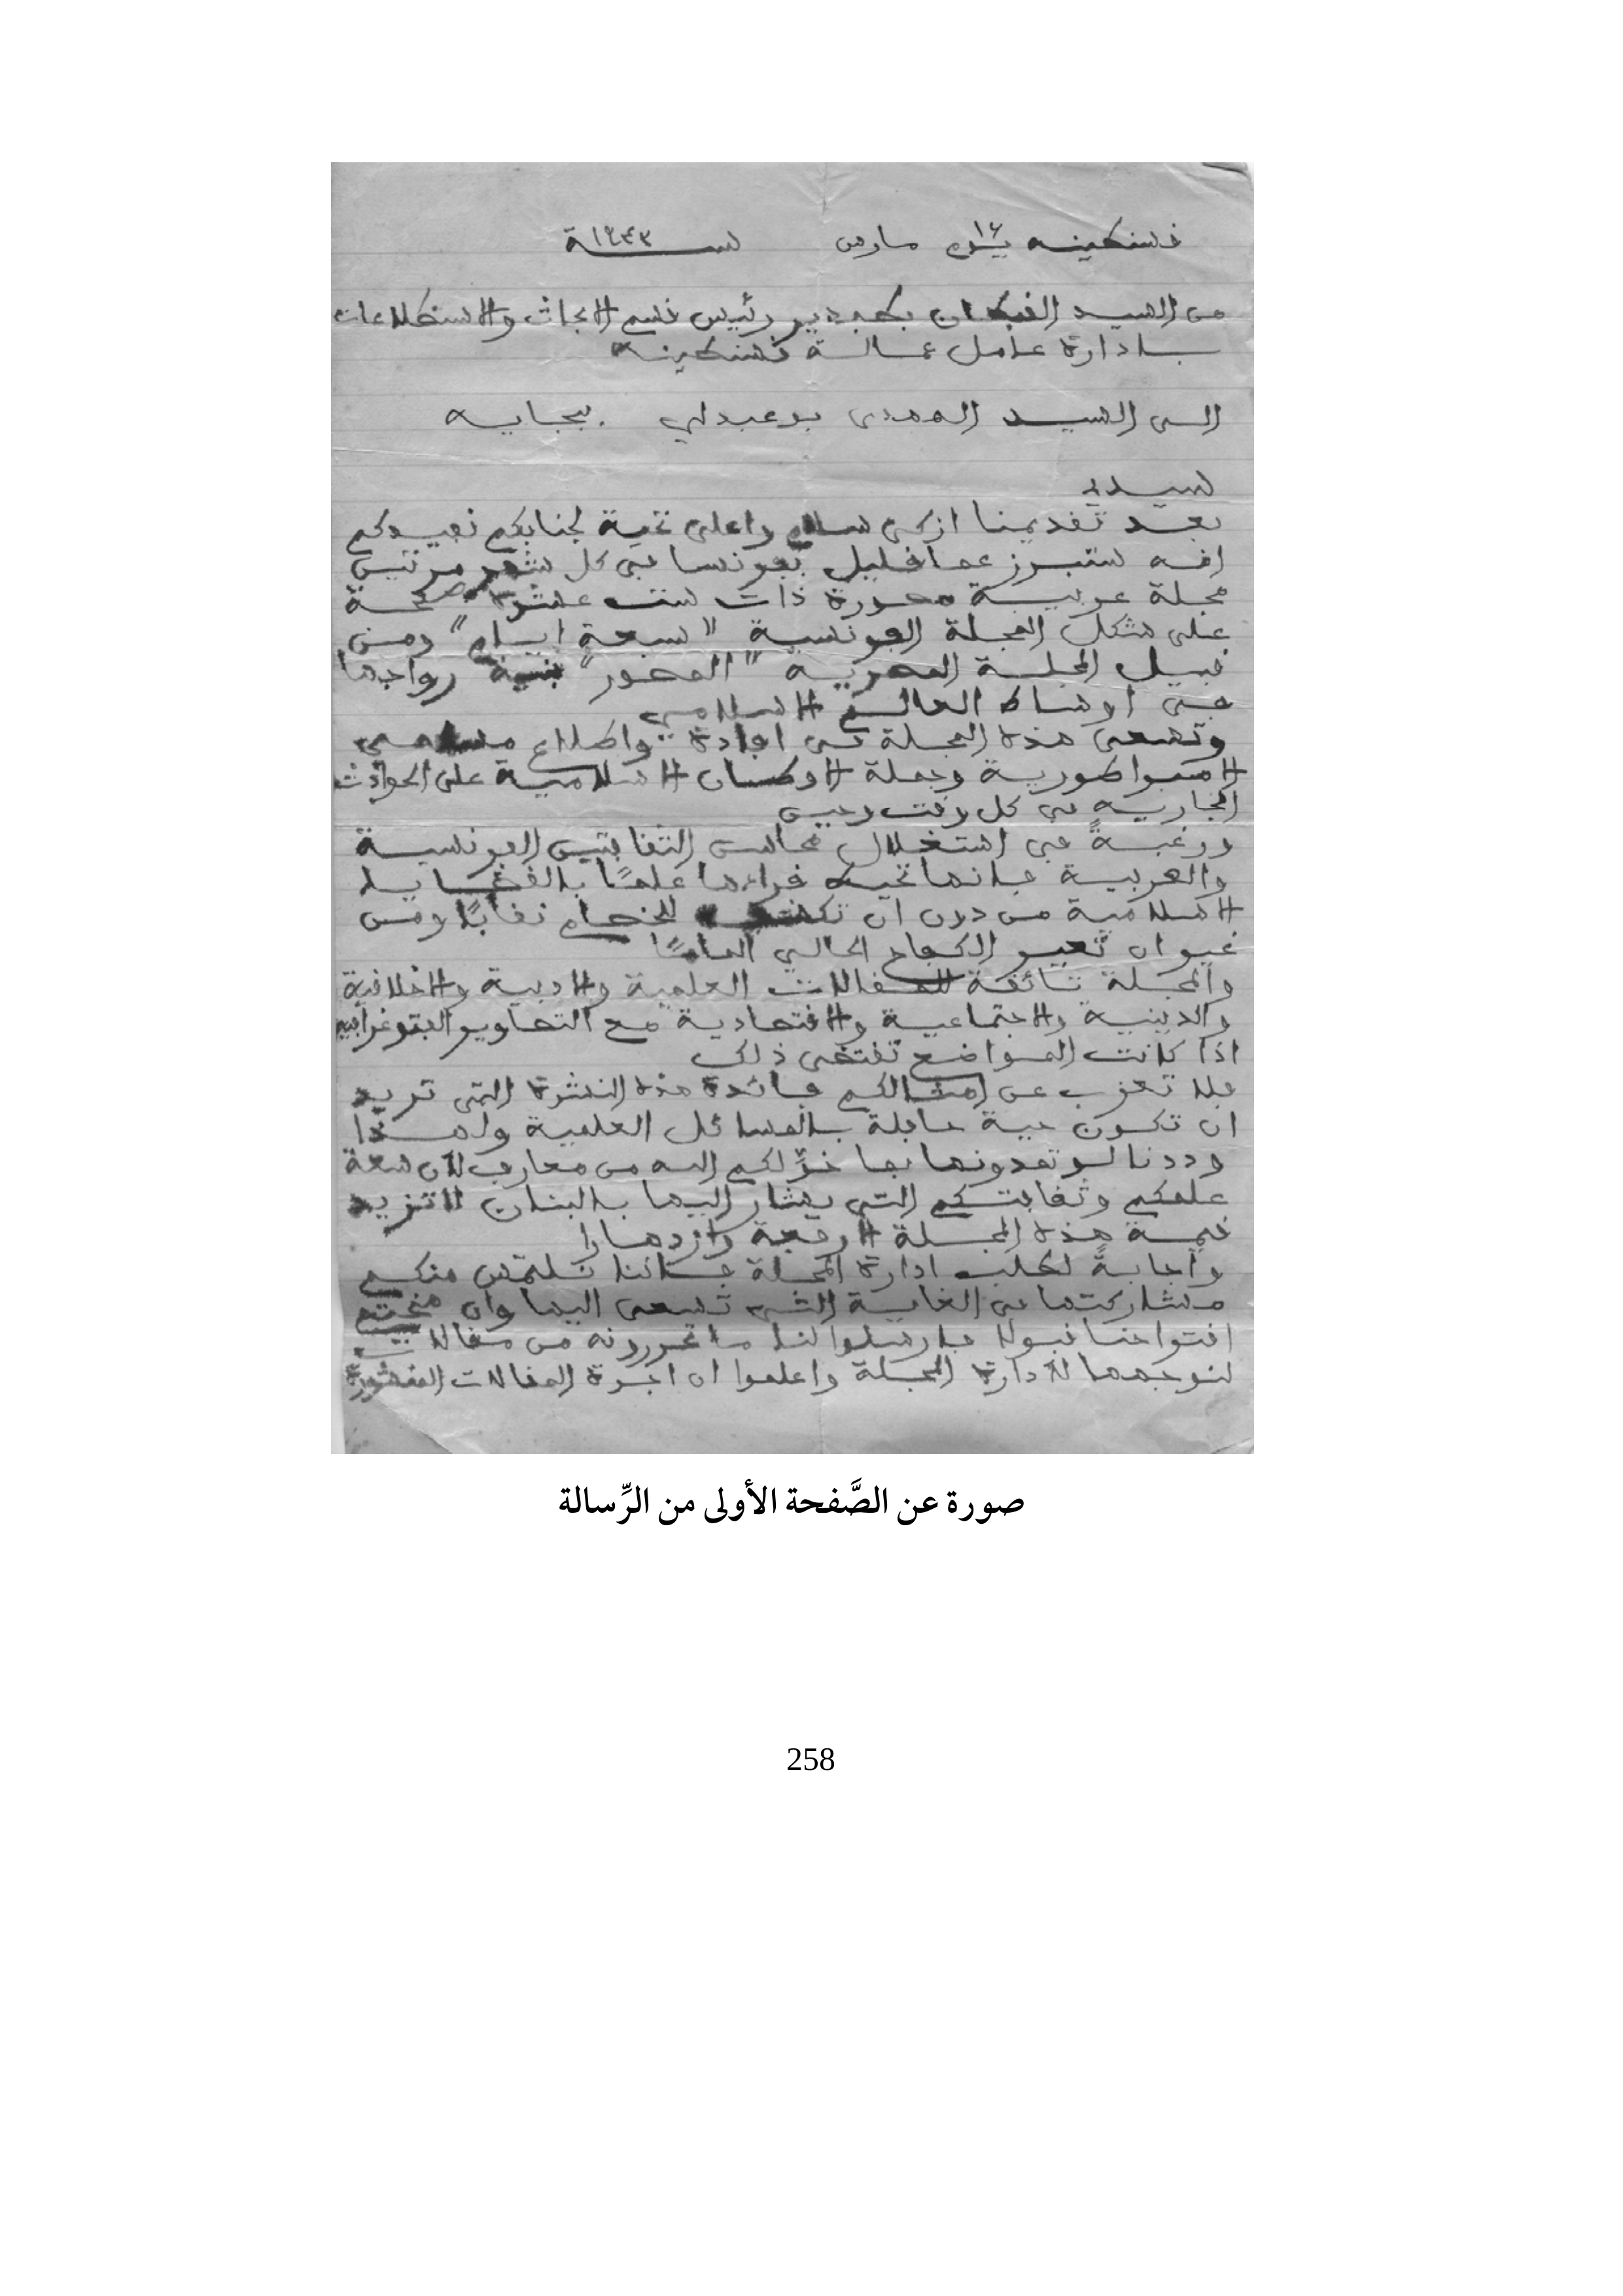 قسنطينه يوم ١٦ مارس سنة ١٩٤٣
من السيد القبطان رئيس قسم الابحاث والاستطلاعات
بادارة عامل عمالة قسنطينه
الى السيد المهدي بوعبدلي . بجايه
سيدي
بعد تقديمنا ازكى سلام واعلى تحية لجنابكم نفيدكم
انه ستبرز عما قليل بفرنسا في كل شهر مرتين
مجلة عربية مصورة ذات ست عشرة صفحة
على شكل المجلة الفرنسية "سبعة ايام" ومن
قبيل المجلة المصرية "المصور" بنية رواجها
في اوساط العالم الاسلامي
وتسعى هذه المجلة في افادة واطلاع مسلمي
الامبراطورية وجملة الاوطان الاسلامية على الحوادث
الجارية في كل وقت وحين
ورغبةً في استغلال محاسن الثقافتين الفرنسية
والعربية فانها تحيط قراءها علمًا بالقضايا
الاسلامية من دون ان تكشف للخصام نقابًا ومن
غير ان تعير الكفاح الحالي الماسًا
والمجلة تائقة للمقالات العلمية والادبية والاخلاقية
والدينية والاجتماعية والاقتصادية مع التصاوير الفتوغرافية
اذا كانت المواضع تقتضى ذلك
فلا تعزب عن امثالكم فائدة هذه النشرة التى تريد
ان تكون حية حافلة بالمسائل العلمية ولهذا
وددنا لو تمدونها بما خوّلكم الله من معارف لأن سعة
علمكم وثقافتكم التى يشار اليها بالبنان لا تزيد
قيمة هذه المجلة الا رفعة وازدهارا
واجابةً لطلب ادارة المجلة فاننا نلتمس منكم
مشاركتها في الغاية التى تسعى اليها وان
اقتراحنا قبولا فارسلوا لنا ما تحررونه من مقالات
لنوجهها لأدارة المجلة واعلموا ان اجرة المقالات المنشورة
صورة عن الصَّفحة الأولى من الرِّسالة
258